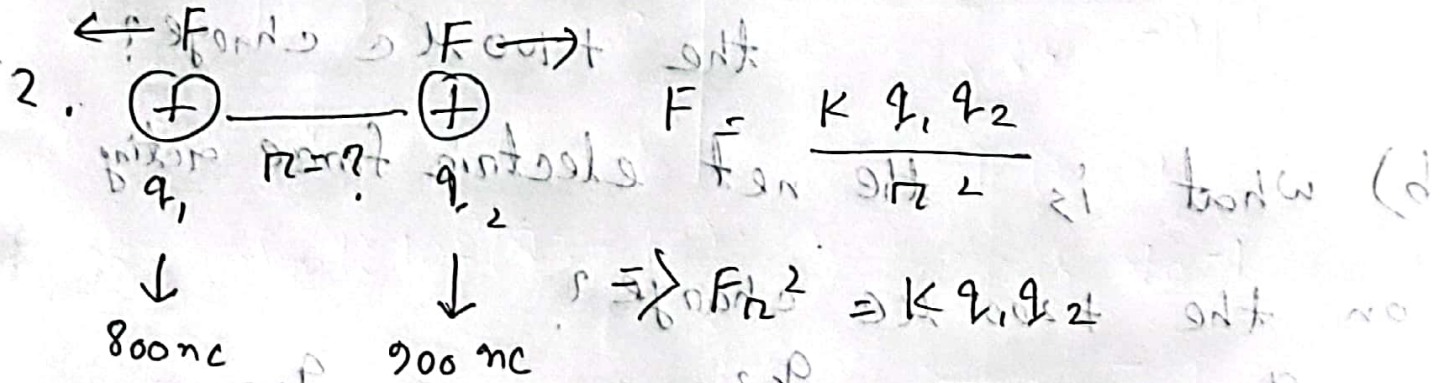 ← F F →
2. (+) ——— (+) F = K q₁ q₂ / r²
q₁ r = ? q₂
↓ ↓ => Fr² = K q₁ q₂
800 nc 900 nc